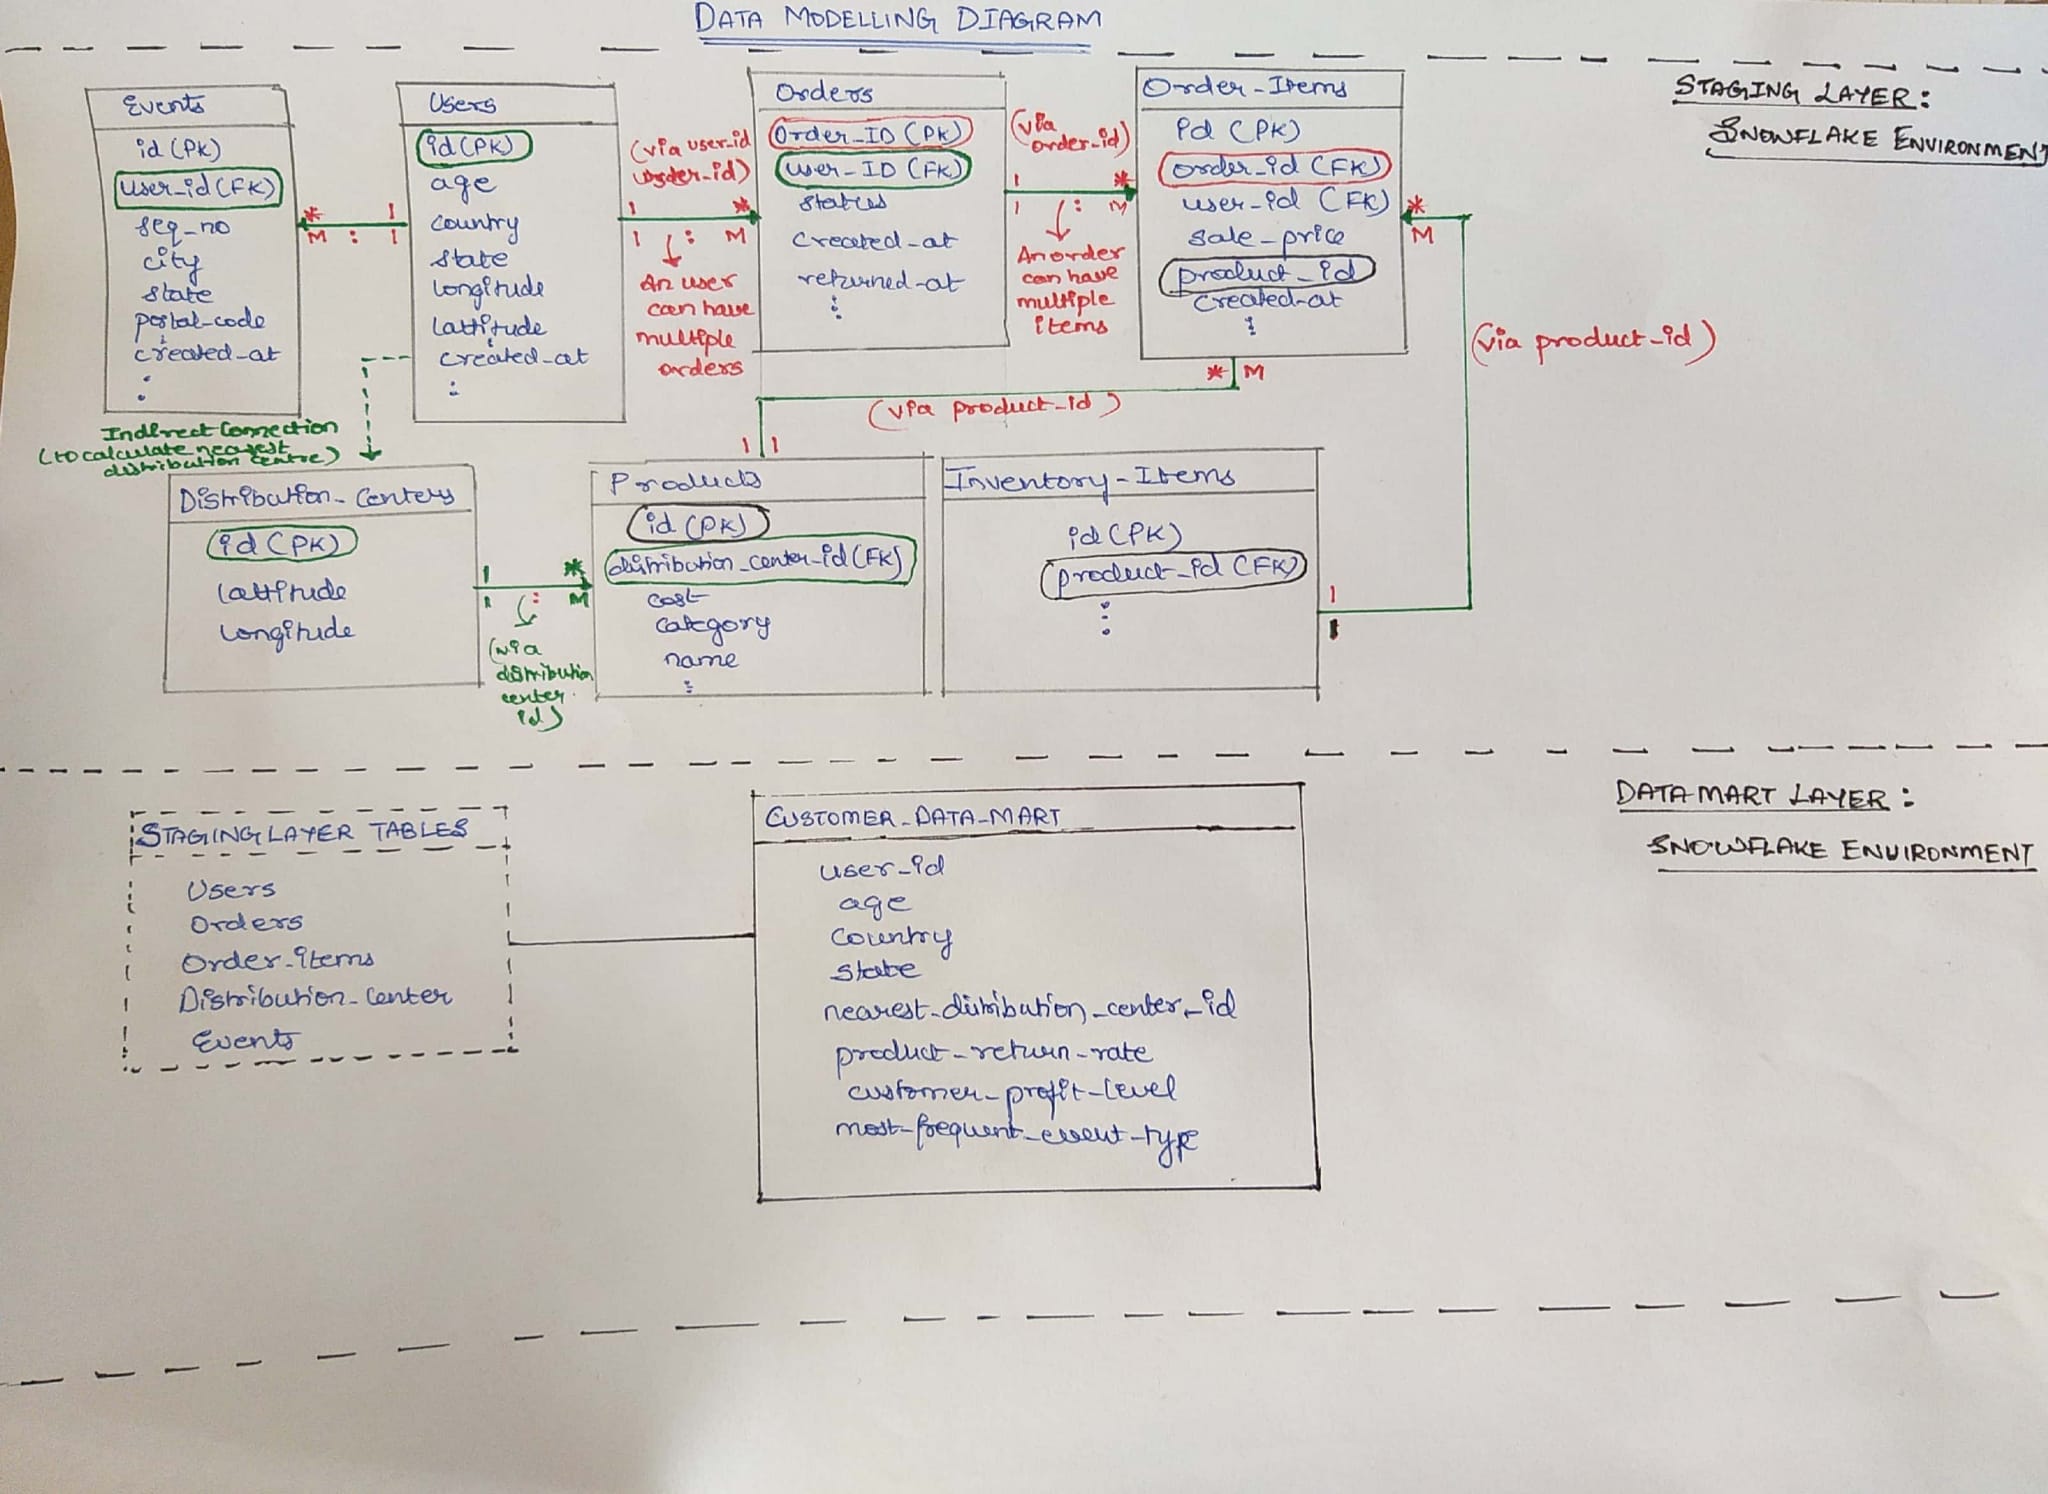 DATA MODELLING DIAGRAM
STAGING LAYER:
SNOWFLAKE ENVIRONMENT
Events
id (PK)
user_id (FK)
seq_no
city
state
postal-code
created-at
:
* 1
M : 1
Users
id (PK)
age
country
state
longitude
lattitude
created-at
:
(via user_id
order_id)
1 *
1 : M
An user
can have
multiple
orders
Orders
Order_ID (PK)
user_ID (FK)
status
created-at
returned-at
:
(via
order_id)
1 *
1 : M
An order
can have
multiple
items
Order-Items
id (PK)
order_id (FK)
user-id (FK)
sale_price
product_id
created-at
:
*
M
(via product_id)
* M
(via product_id)
1 1
Indirect Connection
(to calculate nearest
distribution centre)
Distribution_Centers
id (PK)
lattitude
longitude
1 *
1 : M
(via
distribution
center
id)
Products
id (PK)
distribution_center_id (FK)
cost
category
name
:
Inventory-Items
id (PK)
product_id (FK)
:
1
1
DATA MART LAYER:
SNOWFLAKE ENVIRONMENT
STAGING LAYER TABLES
Users
Orders
Order-items
Distribution_Center
Events
CUSTOMER_DATA_MART
user_id
age
country
state
nearest_distribution_center_id
product-return-rate
customer_profit_level
most-frequent_event-type